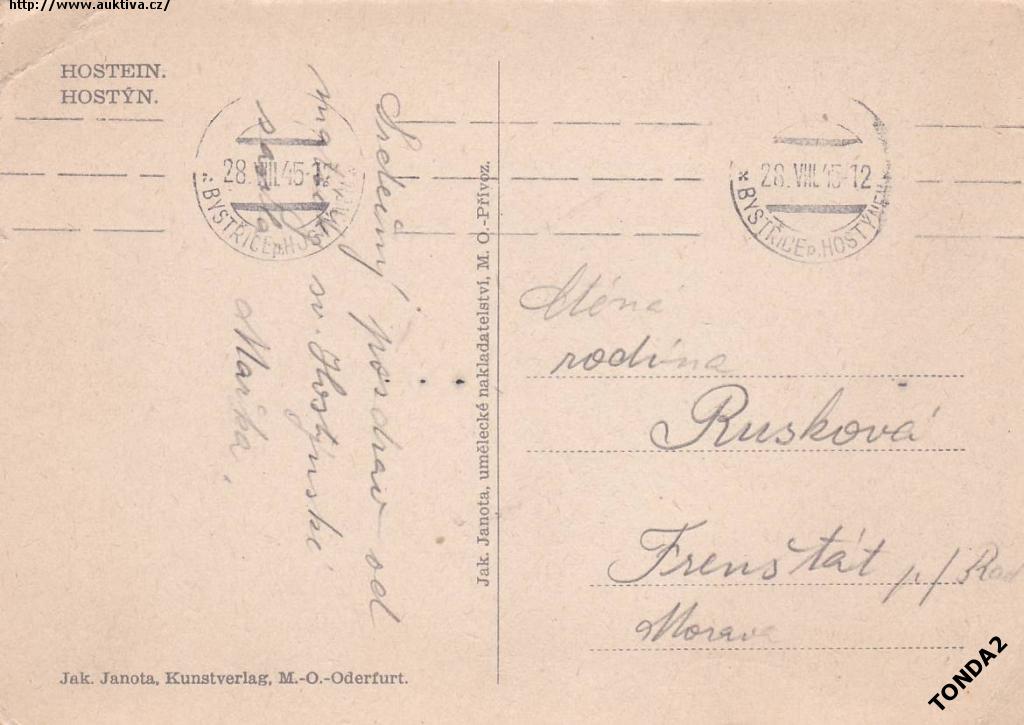 http://www.auktiva.cz/
HOSTEIN.
HOSTÝN.
28.VIII.45-12
* BYSTŘICE p. HOSTÝNEM
28.VIII.45-12
* BYSTŘICE p. HOSTÝNEM
Srdečný posdrav od
sv. Hostýnské
Mařka.
Jak. Janota, umělecké nakladatelství, M. O.-Přívoz.
Ctěná
rodina
Rusková
Frenštát p/Rad
Morava
Jak. Janota, Kunstverlag, M.-O.-Oderfurt.
TONDA2